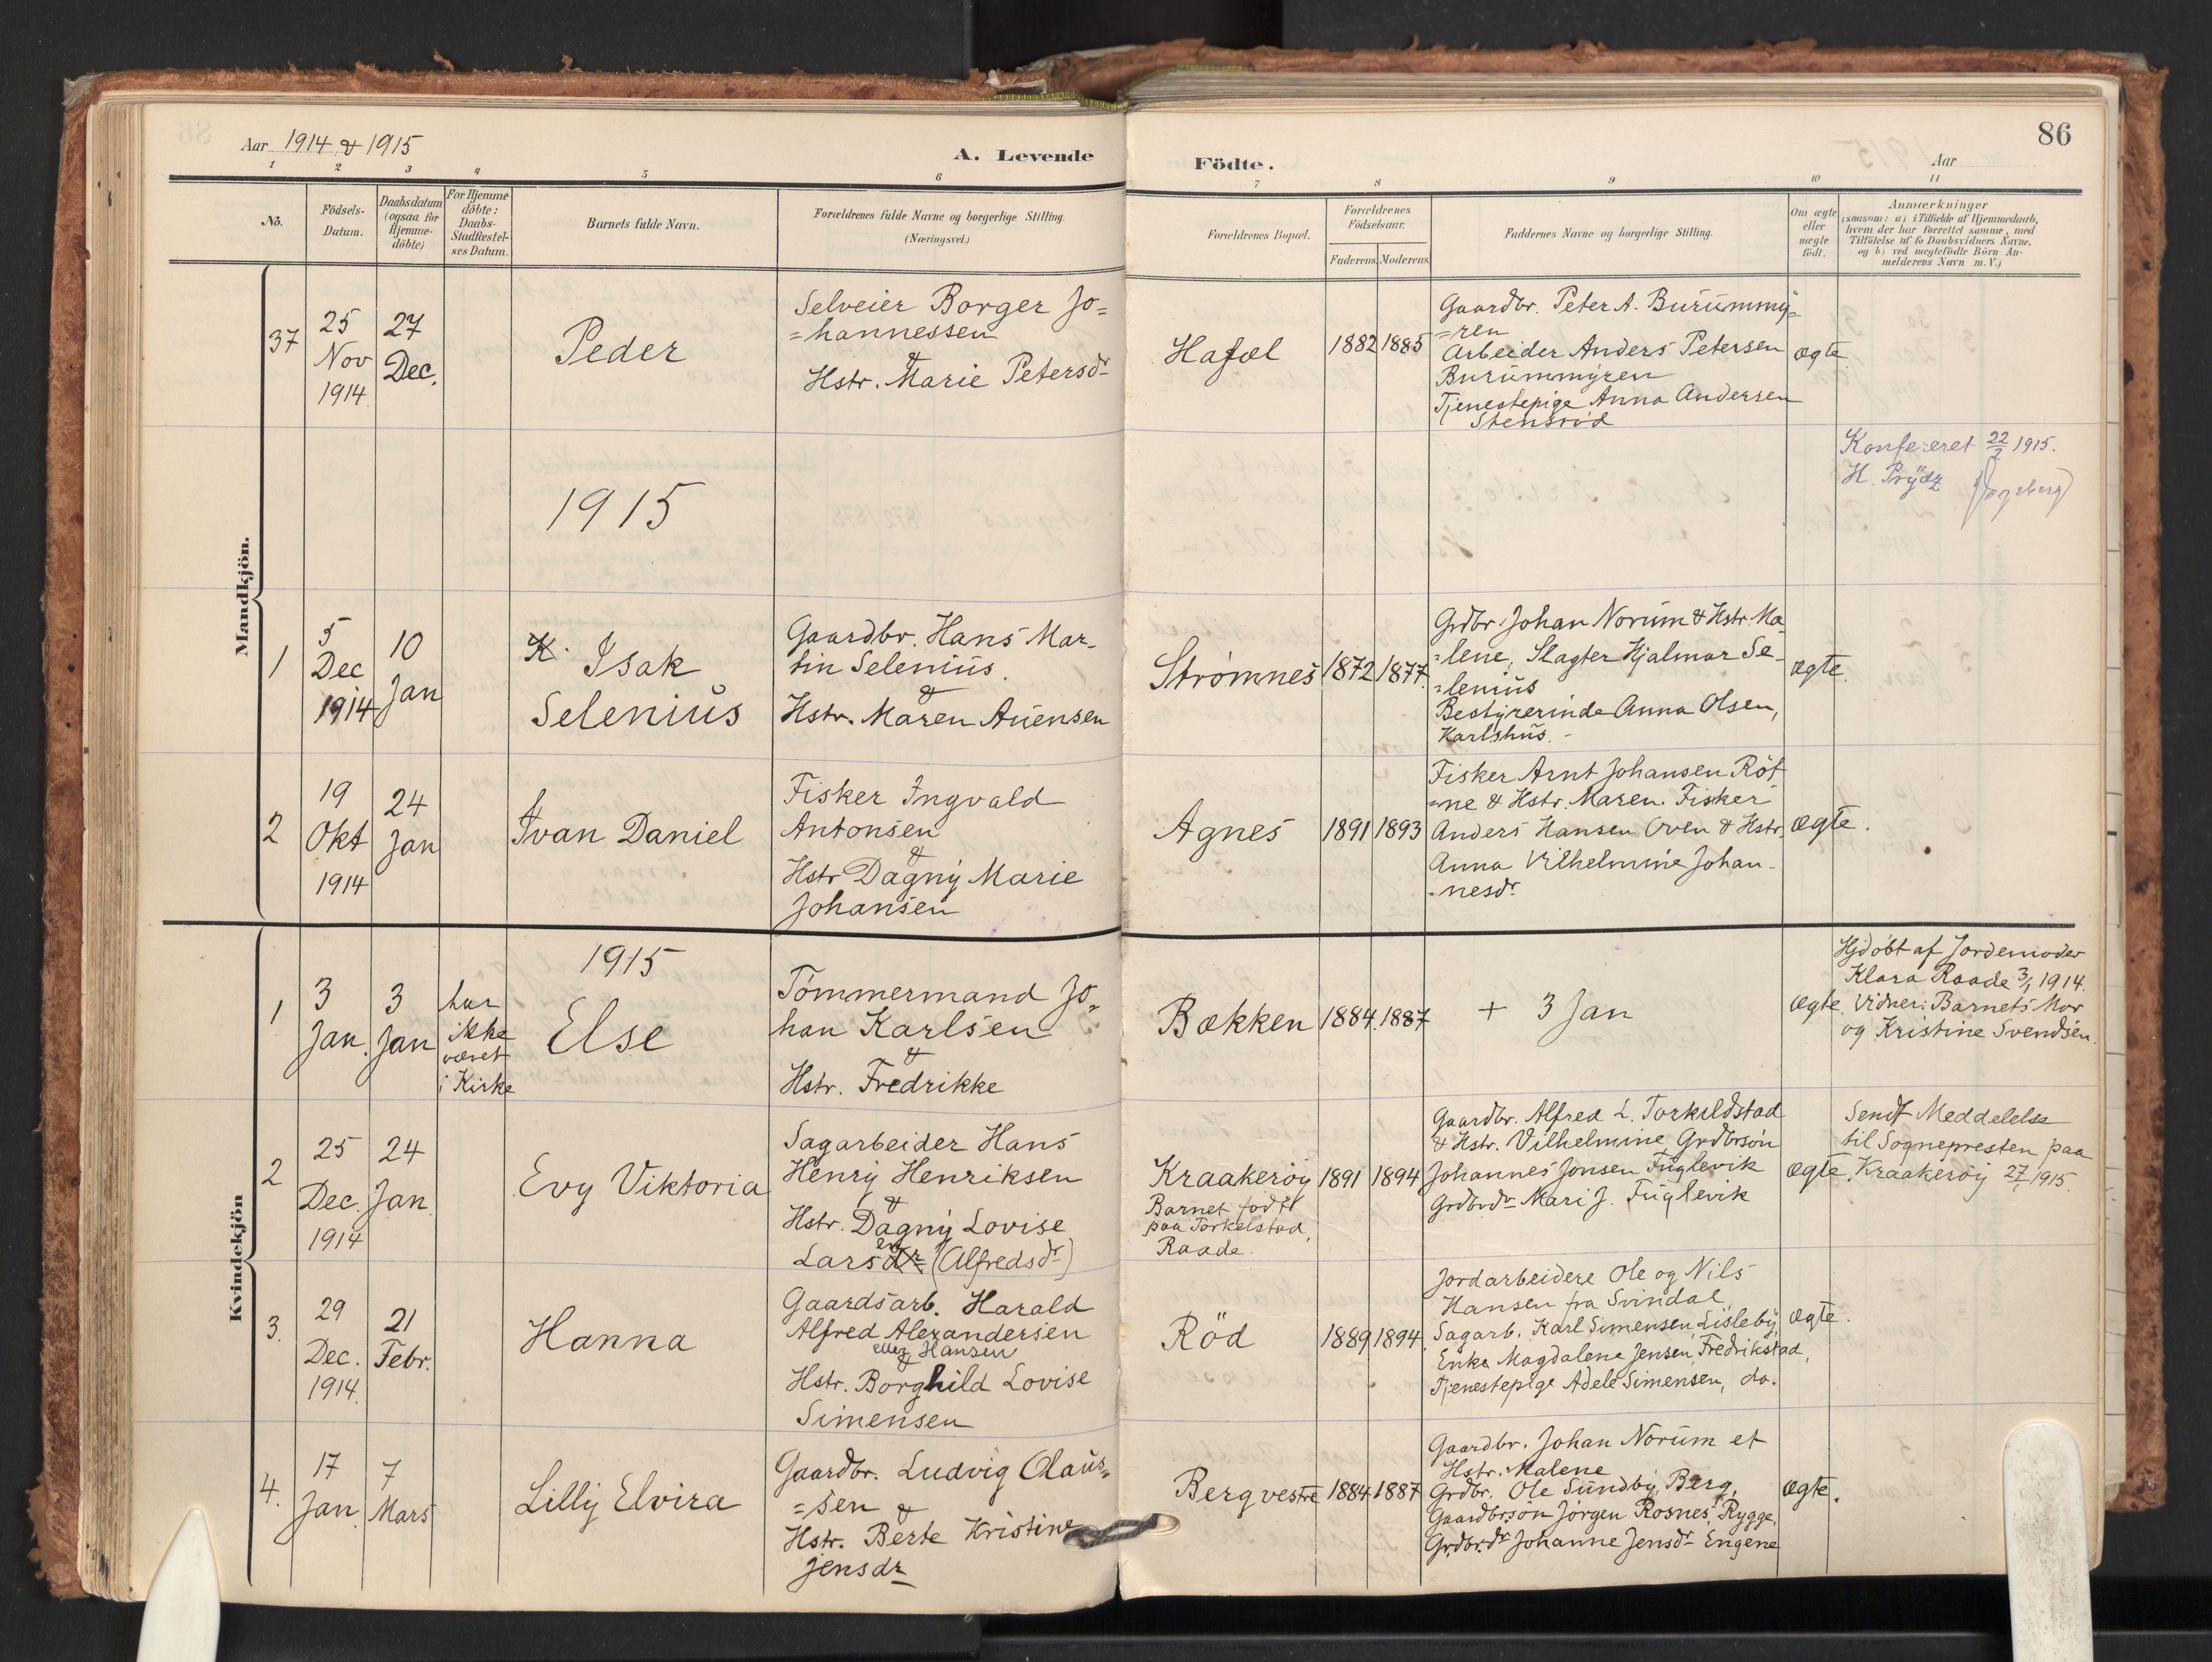 86
Aar 1914 & 1915
A. Levende
Födte.
Aar
1 2 3 4 5 6 7 8 9 10 11
No.
Födsels-
Datum.
Daabsdatum
(ogsaa for
Hjemme-
döbte)
For Hjemme
döbte:
Daabs-
Stadfæstel-
ses Datum.
Barnets fulde Navn.
Forældrenes fulde Navne og borgerlige Stilling.
(Næringsvei.)
Forældrenes Bopæl.
Forældrenes
Födselsaar.
Faderens.
Moderens.
Faddernes Navne og borgerlige Stilling.
Om ægte
eller
uægte
födt.
Anmærkninger
(saasom: a) i Tilfælde af Hjemmedaab,
hvem der har forrettet samme, med
Tilföielse af to Daabsvidners Navne,
og b) ved uægtefödte Börn An-
melderens Navn m. V.)
Mandkjön.
37
25
Nov
1914.
27
Dec.
Peder
Selveier Borger Jo=
=hannessen
&
Hstr. Marie Petersdr
Hafæl
1882
1885
Gaardbr. Peter A. Burummy=
=ren
Arbeider Anders Petersen
Burummyren
Tjenestepige Anna Andersen
Stensrød
ægte.
Konfereret 22/2 1915.
H. Prydz
1915
1
5
Dec
1914
10
Jan
K. Isak
Selenius
Gaardbr. Hans Mar-
tin Selenius.
&
Hstr. Maren Auensen
Strømnes
1872
1877.
Grdbr. Johan Norum & Hstr. Ma
=lene, Slagter Hjalmar Se-
=lenius
Bestyrerinde Anna Olsen,
Karlshus.-
ægte.
2
19
Okt
1914
24
Jan
Ivan Daniel
Fisker Ingvald
Antonsen
&
Hstr Dagny Marie
Johansen
Agnes
1891
1893
Fisker Arnt Johansen Röt
=ne & Hstr. Maren. Fisker
Anders Hansen Oven & Hstr.
Anna Vilhelmine Johan-
-nesdr.
ægte.
Kvindekjön
1915
1
3
Jan.
3
Jan
har
ikke
været
i Kirke
Else
Tömmermand Jo=
han Karlsen
&
Hstr. Fredrikke
Bækken
1884.
1887
+ 3 Jan
ægte.
Hjdøbt af Jordemoder
Klara Raade 3/1 1914.
Vidner: Barnets Mor
og Kristine Svendsen.
2
25
Dec.
1914
24
Jan.
Evy Viktoria
Sagarbeider Hans
Henry Henriksen
&
Hstr. Dagny Lovise
Larsen (Alfredsdr)
Kraakeröy
Barnet födt
paa Torkelstad,
Raade.
1891
1894
Gaardbr. Alfred L. Torkildstad
& Hstr. Vilhelmine Grdbrsön
Johannes Jonsen Fuglevik
Grdbrdr Mari J. Fuglevik
ægte.
Sendt Meddelelse
til Sognepresten paa
Kraakeröy 27/1 1915.
3.
29
Dec.
1914.
21
Febr.
Hanna
Gaardsarb. Harald
Alfred Alexandersen
eller Hansen
&
Hstr. Borghild Lovise
Simensen
Röd
1889
1894
Jordarbeidere Ole og Nils
Hansen fra Svindal
Sagarb. Karl Simensen, Lisleby,
Enke Magdalene Jensen, Fredrikstad,
Tjenestepige Adele Simensen, do.
ægte.
4.
17
Jan.
7
Mars
Lilly Elvira
Gaardbr. Ludvig Olaus=
=sen &
Hstr. Berte Kristine
Jensdr
Berg vestre
1884
1887
Gaardbr. Johan Norum et
Hstr. Malene
Grdbr. Ole Sundby, Berg,
Gaardbrsön Jörgen Rosnes, Rygge,
Grdbr.dr Johanne Jensdr Engene
ægte.